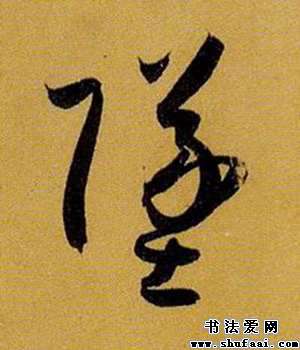 墜
书法爱网
www.shufaai.com